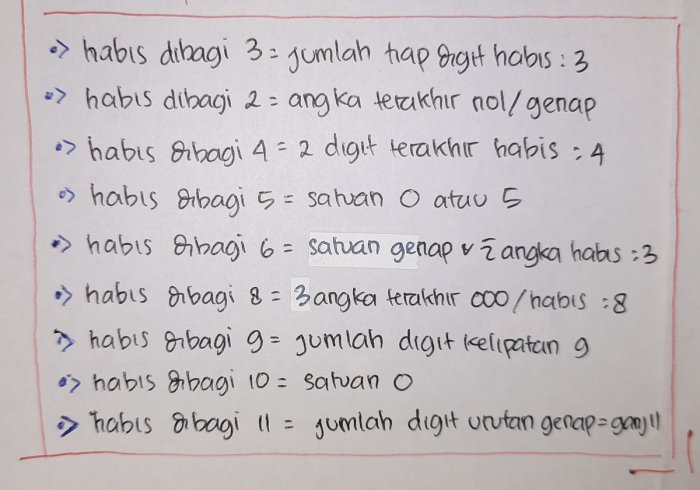 habis dibagi 3 = jumlah tiap digit habis : 3
habis dibagi 2 = angka terakhir nol/genap
habis dibagi 4 = 2 digit terakhir habis : 4
habis dibagi 5 = satuan 0 atau 5
habis dibagi 6 = satuan genap v Σ angka habis : 3
habis dibagi 8 = 3 angka terakhir 000/habis : 8
habis dibagi 9 = jumlah digit kelipatan 9
habis dibagi 10 = satuan 0
habis dibagi 11 = jumlah digit urutan genap = ganjil